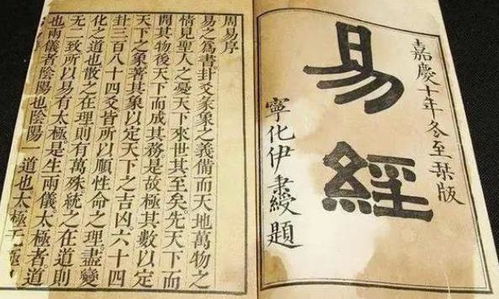 嘉慶十年冬至栞版
易經
寧化伊秉綬題
周易序
易之爲書卦爻彖象之義備而天地萬物之
情見聖人之憂天下來世其至矣先天下而
開其物後天下而成其務是故極其數以定
天下之象著其象以定天下之吉凶六十四
卦三百八十四爻皆所以順性命之理盡變
化之道也散之在理則有萬殊統之在道則
無二致所以易有太極是生兩儀太極者道
也兩儀者陰陽也陰陽一道也太極无極